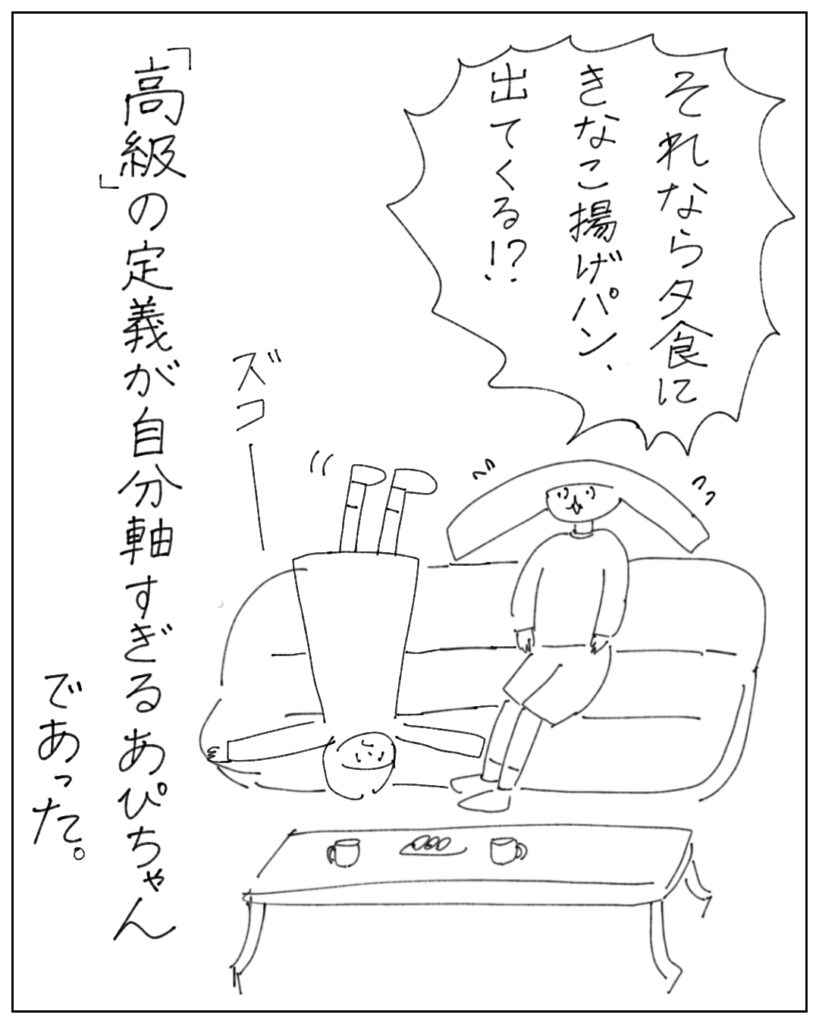 それなら夕食に
きなこ揚げパン、
出てくる!?
ズコー
「高級」の定義が自分軸すぎるあぴちゃん
であった。